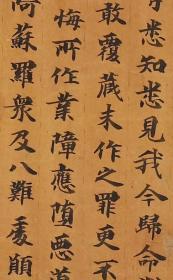 悉知悉見我今歸命
敢覆藏未作之罪更不
悔所作業障應墮惡道
阿蘇羅衆及八難處願